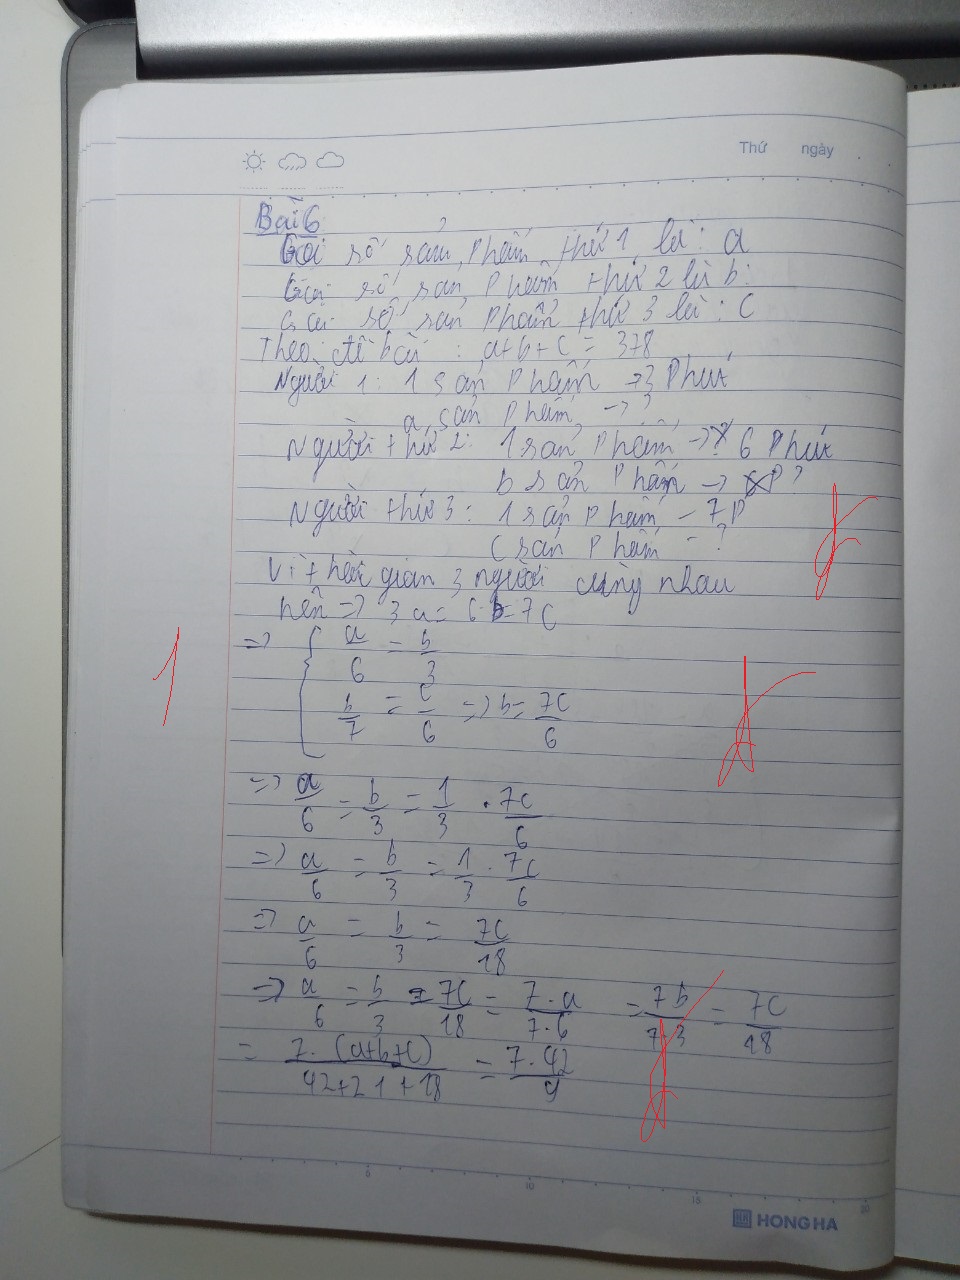 Thứ ngày
Bài 6
Gọi số sản phẩm thứ 1 là : a
Gọi số sản phẩm thứ 2 là b :
Gọi số sản phẩm thứ 3 là : C
Theo đề bài : a+b+c = 378
Người 1 : 1 sản phẩm → 3 Phút
a sản phẩm → ?
Người thứ 2 : 1 sản phẩm → 6 Phút
b sản phẩm → P ?
Người thứ 3 : 1 sản phẩm - 7 P
C sản phẩm - ?
Vì thời gian 3 người cùng nhau
nên => 3a = 6b = 7C
=> { a/6 = b/3
b/7 = c/6 => b = 7C/6
=> a/6 = b/3 = 1/3 . 7C/6
=> a/6 = b/3 = 1/3 . 7C/6
=> a/6 = b/3 = 7C/18
=> a/6 = b/3 = 7C/18 = 7.a/7.6 = 7b/7.3 = 7C/18
= 7.(a+b+c)/42+21+18 = 7.42/9
1
5 10 15 20
HONG HA